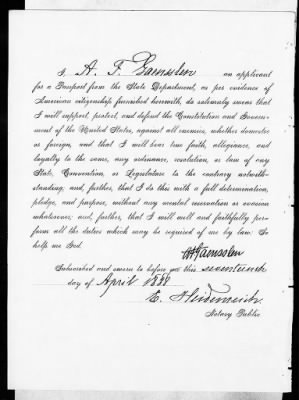 I, A. F. Gaensslen an applicant
for a Passport from the State Department, as per evidence of
American citizenship furnished herewith, do solemnly swear that
I will support, protect, and defend the Constitution and Govern-
ment of the United States, against all enemies, whether domestic
or foreign, and that I will bear true faith, allegiance, and
loyalty to the same, any ordinance, resolution, or law of any
State, Convention, or Legislature to the contrary notwith-
standing; and, further, that I do this with a full determination,
pledge, and purpose, without any mental reservation or evasion
whatsoever; and, further, that I will well and faithfully per-
form all the duties which may be required of me by law. So
help me God.
A F Gaensslen
Subscribed and sworn to before me this seventeenth
day of April 1888
E. Heidenreich
Notary Public